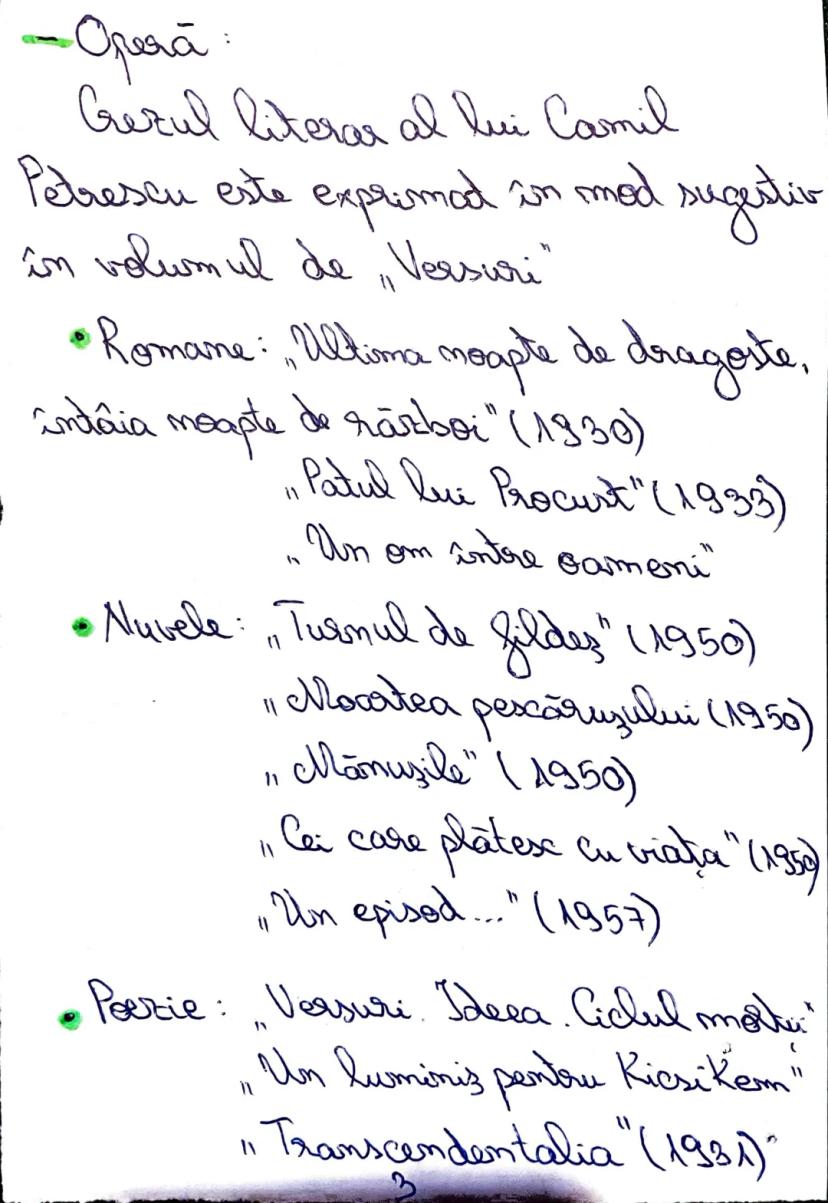 - Operă :
Crezul literar al lui Camil
Petrescu este exprimat în mod sugestiv
în volumul de „Versuri"
• Romane: „Ultima noapte de dragoste,
întâia noapte de război" (1930)
„Patul lui Procust" (1933)
„Un om între oameni"
• Nuvele: „Turnul de fildeș" (1950)
„Moartea pescărușului (1950)
„Mănușile" (1950)
„Cei care plătesc cu viața" (1950)
„Un episod..." (1957)
• Poezie: „Versuri. Ideea. Ciclul morții"
„Un luminiș pentru Kicsikem"
„Transcendentalia" (1931)
3